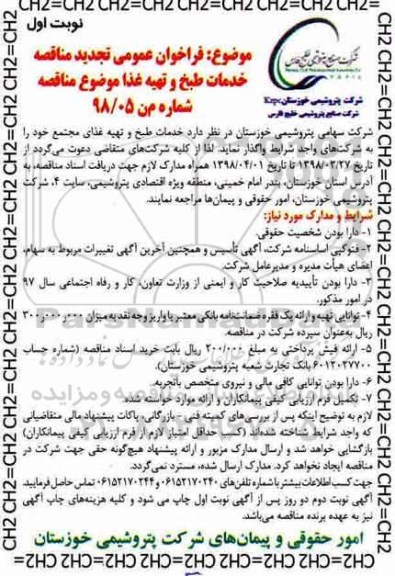 CH2=CH2=CH2=CH2=CH2=CH2=CH2=CH2=CH2
نوبت اول
موضوع: فراخوان عمومی تجدید مناقصه
خدمات طبخ و تهیه غذا موضوع مناقصه
شماره من ۹۸/۰۵
شرکت صنایع پتروشیمی خلیج فارس
شرکت پتروشیمی خوزستان Kzpc
شرکت صنایع پتروشیمی خلیج فارس
شرکت سهامی پتروشیمی خوزستان در نظر دارد خدمات طبخ و تهیه غذای مجتمع خود را
به شرکت‌های واجد شرایط واگذار نماید. لذا از کلیه شرکت‌های متقاضی دعوت می‌گردد از
تاریخ ۱۳۹۸/۰۳/۲۷ تا تاریخ ۱۳۹۸/۰۴/۰۱ همراه مدارک لازم جهت دریافت اسناد مناقصه، به
آدرس استان خوزستان، بندر امام خمینی، منطقه ویژه اقتصادی پتروشیمی، سایت ۴، شرکت
پتروشیمی خوزستان، امور حقوقی و پیمان‌ها مراجعه نمایند.
شرایط و مدارک مورد نیاز:
۱- دارا بودن شخصیت حقوقی.
۲- فتوکپی اساسنامه شرکت، آگهی تأسیس و همچنین آخرین آگهی تغییرات مربوط به سهام،
اعضای هیأت مدیره و مدیرعامل شرکت.
۳- دارا بودن تأییدیه صلاحیت کار و ایمنی از وزارت تعاون، کار و رفاه اجتماعی سال ۹۷
در امور مذکور.
۴- توانایی تهیه و ارائه یک فقره ضمانتنامه بانکی معتبر یا واریز وجه نقد به میزان ۳۰۰٫۰۰۰٫۰۰۰
ریال به‌عنوان سپرده شرکت در مناقصه.
۵- ارائه فیش پرداختی به مبلغ ۲۰۰/۰۰۰ ریال بابت خرید اسناد مناقصه (شماره حساب
۶۰۱۲۰۲۷۷۰۰ بانک تجارت شعبه پتروشیمی خوزستان).
۶- دارا بودن توانایی کافی مالی و نیروی متخصص باتجربه.
۷- تکمیل فرم ارزیابی کیفی پیمانکاران و ارائه موارد خواسته شده.
لازم به توضیح اینکه پس از بررسی‌های کمیته فنی - بازرگانی، پاکات پیشنهاد مالی متقاضیانی
که واجد شرایط شناخته شده‌اند (کسب حداقل امتیاز لازم از فرم ارزیابی کیفی پیمانکاران)
بازگشایی خواهد شد و ارسال مدارک مزبور و ارائه پیشنهاد هیچ‌گونه حقی جهت شرکت در
مناقصه ایجاد نخواهد کرد. مدارک ارسال شده، مسترد نمی‌گردد.
جهت کسب اطلاعات بیشتر با شماره تلفن‌های ۰۶۱۵۲۱۷۰۲۴۰ و ۰۶۱۵۲۱۷۰۲۴۴ تماس حاصل فرمایید.
آگهی نوبت دوم دو روز پس از آگهی نوبت اول چاپ می شود و کلیه هزینه‌های چاپ آگهی
نیز به عهده برنده مناقصه می‌باشد.
امور حقوقی و پیمان‌های شرکت پتروشیمی خوزستان
CH2=CH2=CH2=CH2=CH2=CH2=CH2=CH2=CH2